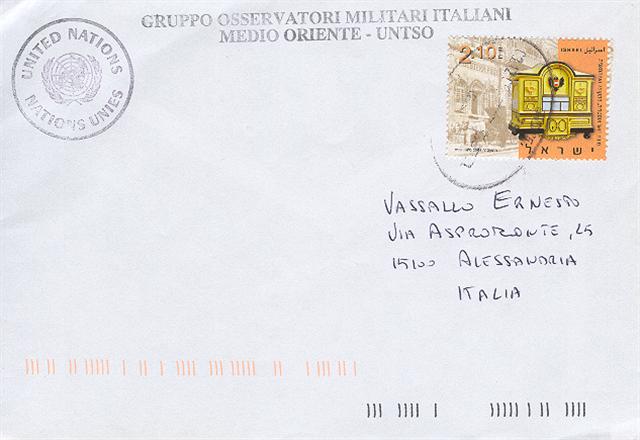 GRUPPO OSSERVATORI MILITARI ITALIANI
MEDIO ORIENTE - UNTSO
UNITED NATIONS
NATIONS UNIES
2.10
ISRAEL اسرائيل
ישראל
VASSALLO ERNESTO
VIA ASPROMONTE, 25
15100 ALESSANDRIA
ITALIA